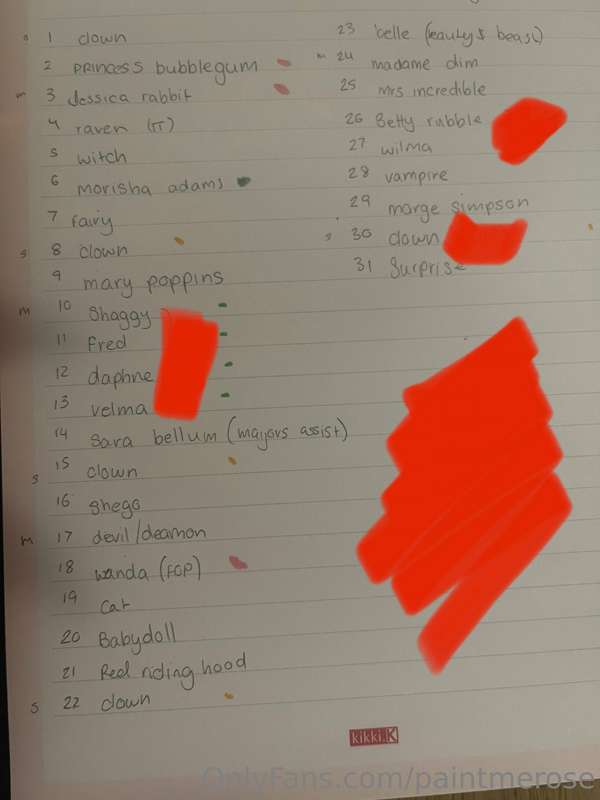 1 clown
2 PRINCESS bubblegum
m 3 Jessica rabbit
4 raven (TT)
5 witch
6 morisha adams
7 fairy
s 8 clown
9 mary poppins
m 10 Shaggy
11 Fred
12 daphne
13 velma
14 sara bellum (mayors assist)
s 15 clown
16 shego
m 17 devil/deamon
18 wanda (FOP)
19 cat
20 Babydoll
21 Red riding hood
s 22 clown
23 belle (beauty & beast)
m 24 madame dim
25 mrs incredible
26 Betty rubble
27 wilma
28 vampire
29 marge simpson
s 30 clown
31 Surprise
kikki.K
OnlyFans.com/paintmerose